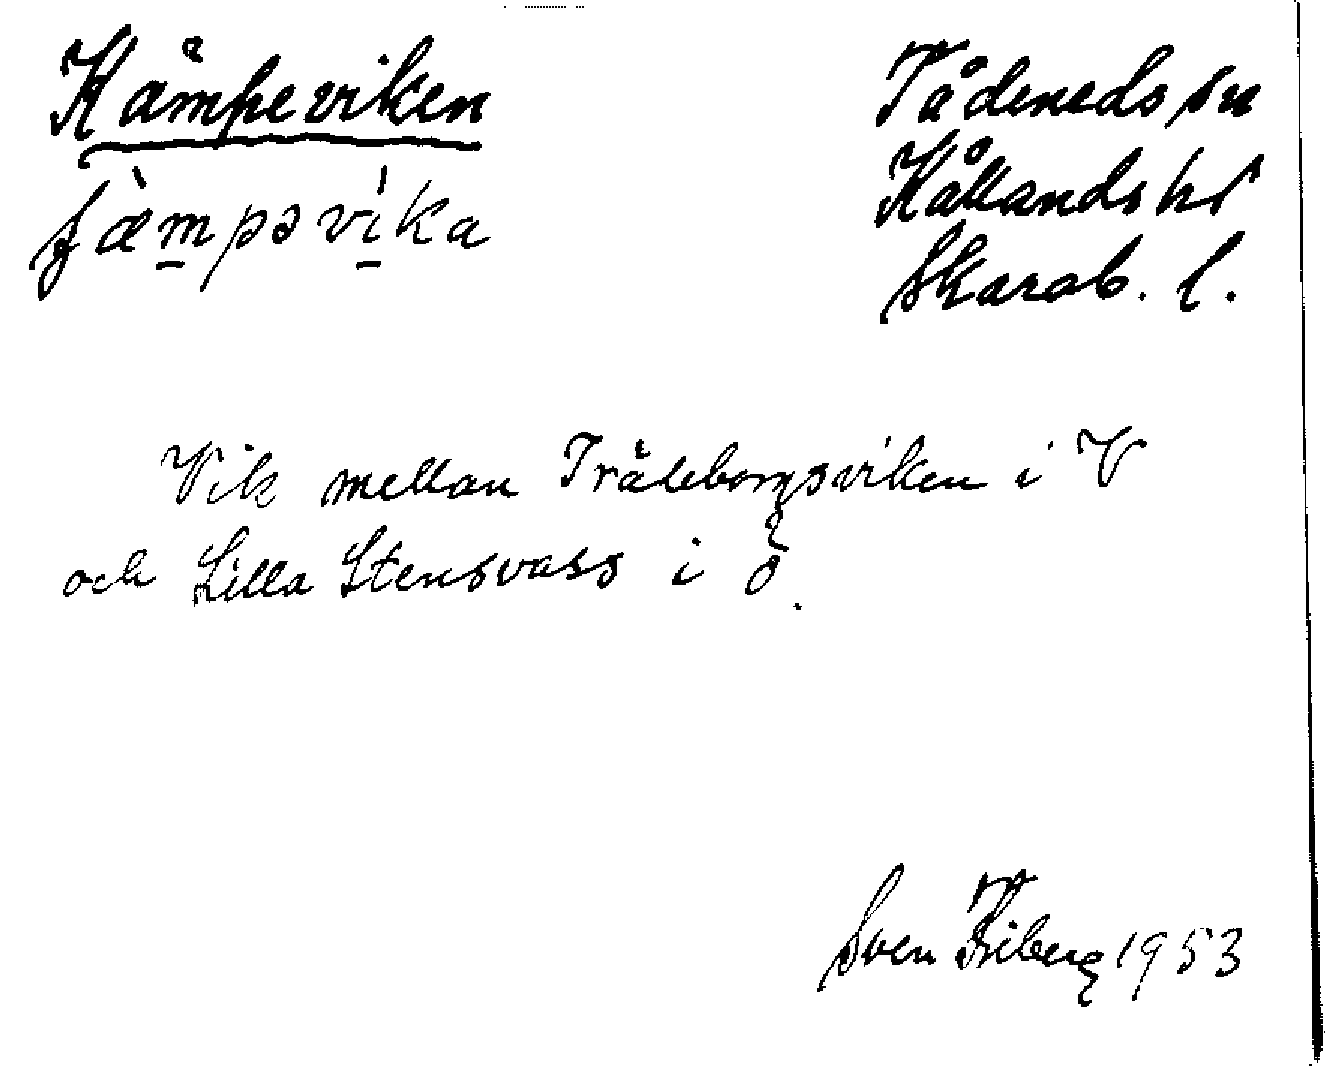 Kämpeviken
Tådeneds sn
Kållands hd
Skarab. l.
Vik mellan Träleborgsviken i V
och Lilla Stensvass i Ö.
Sven Friberg 1953